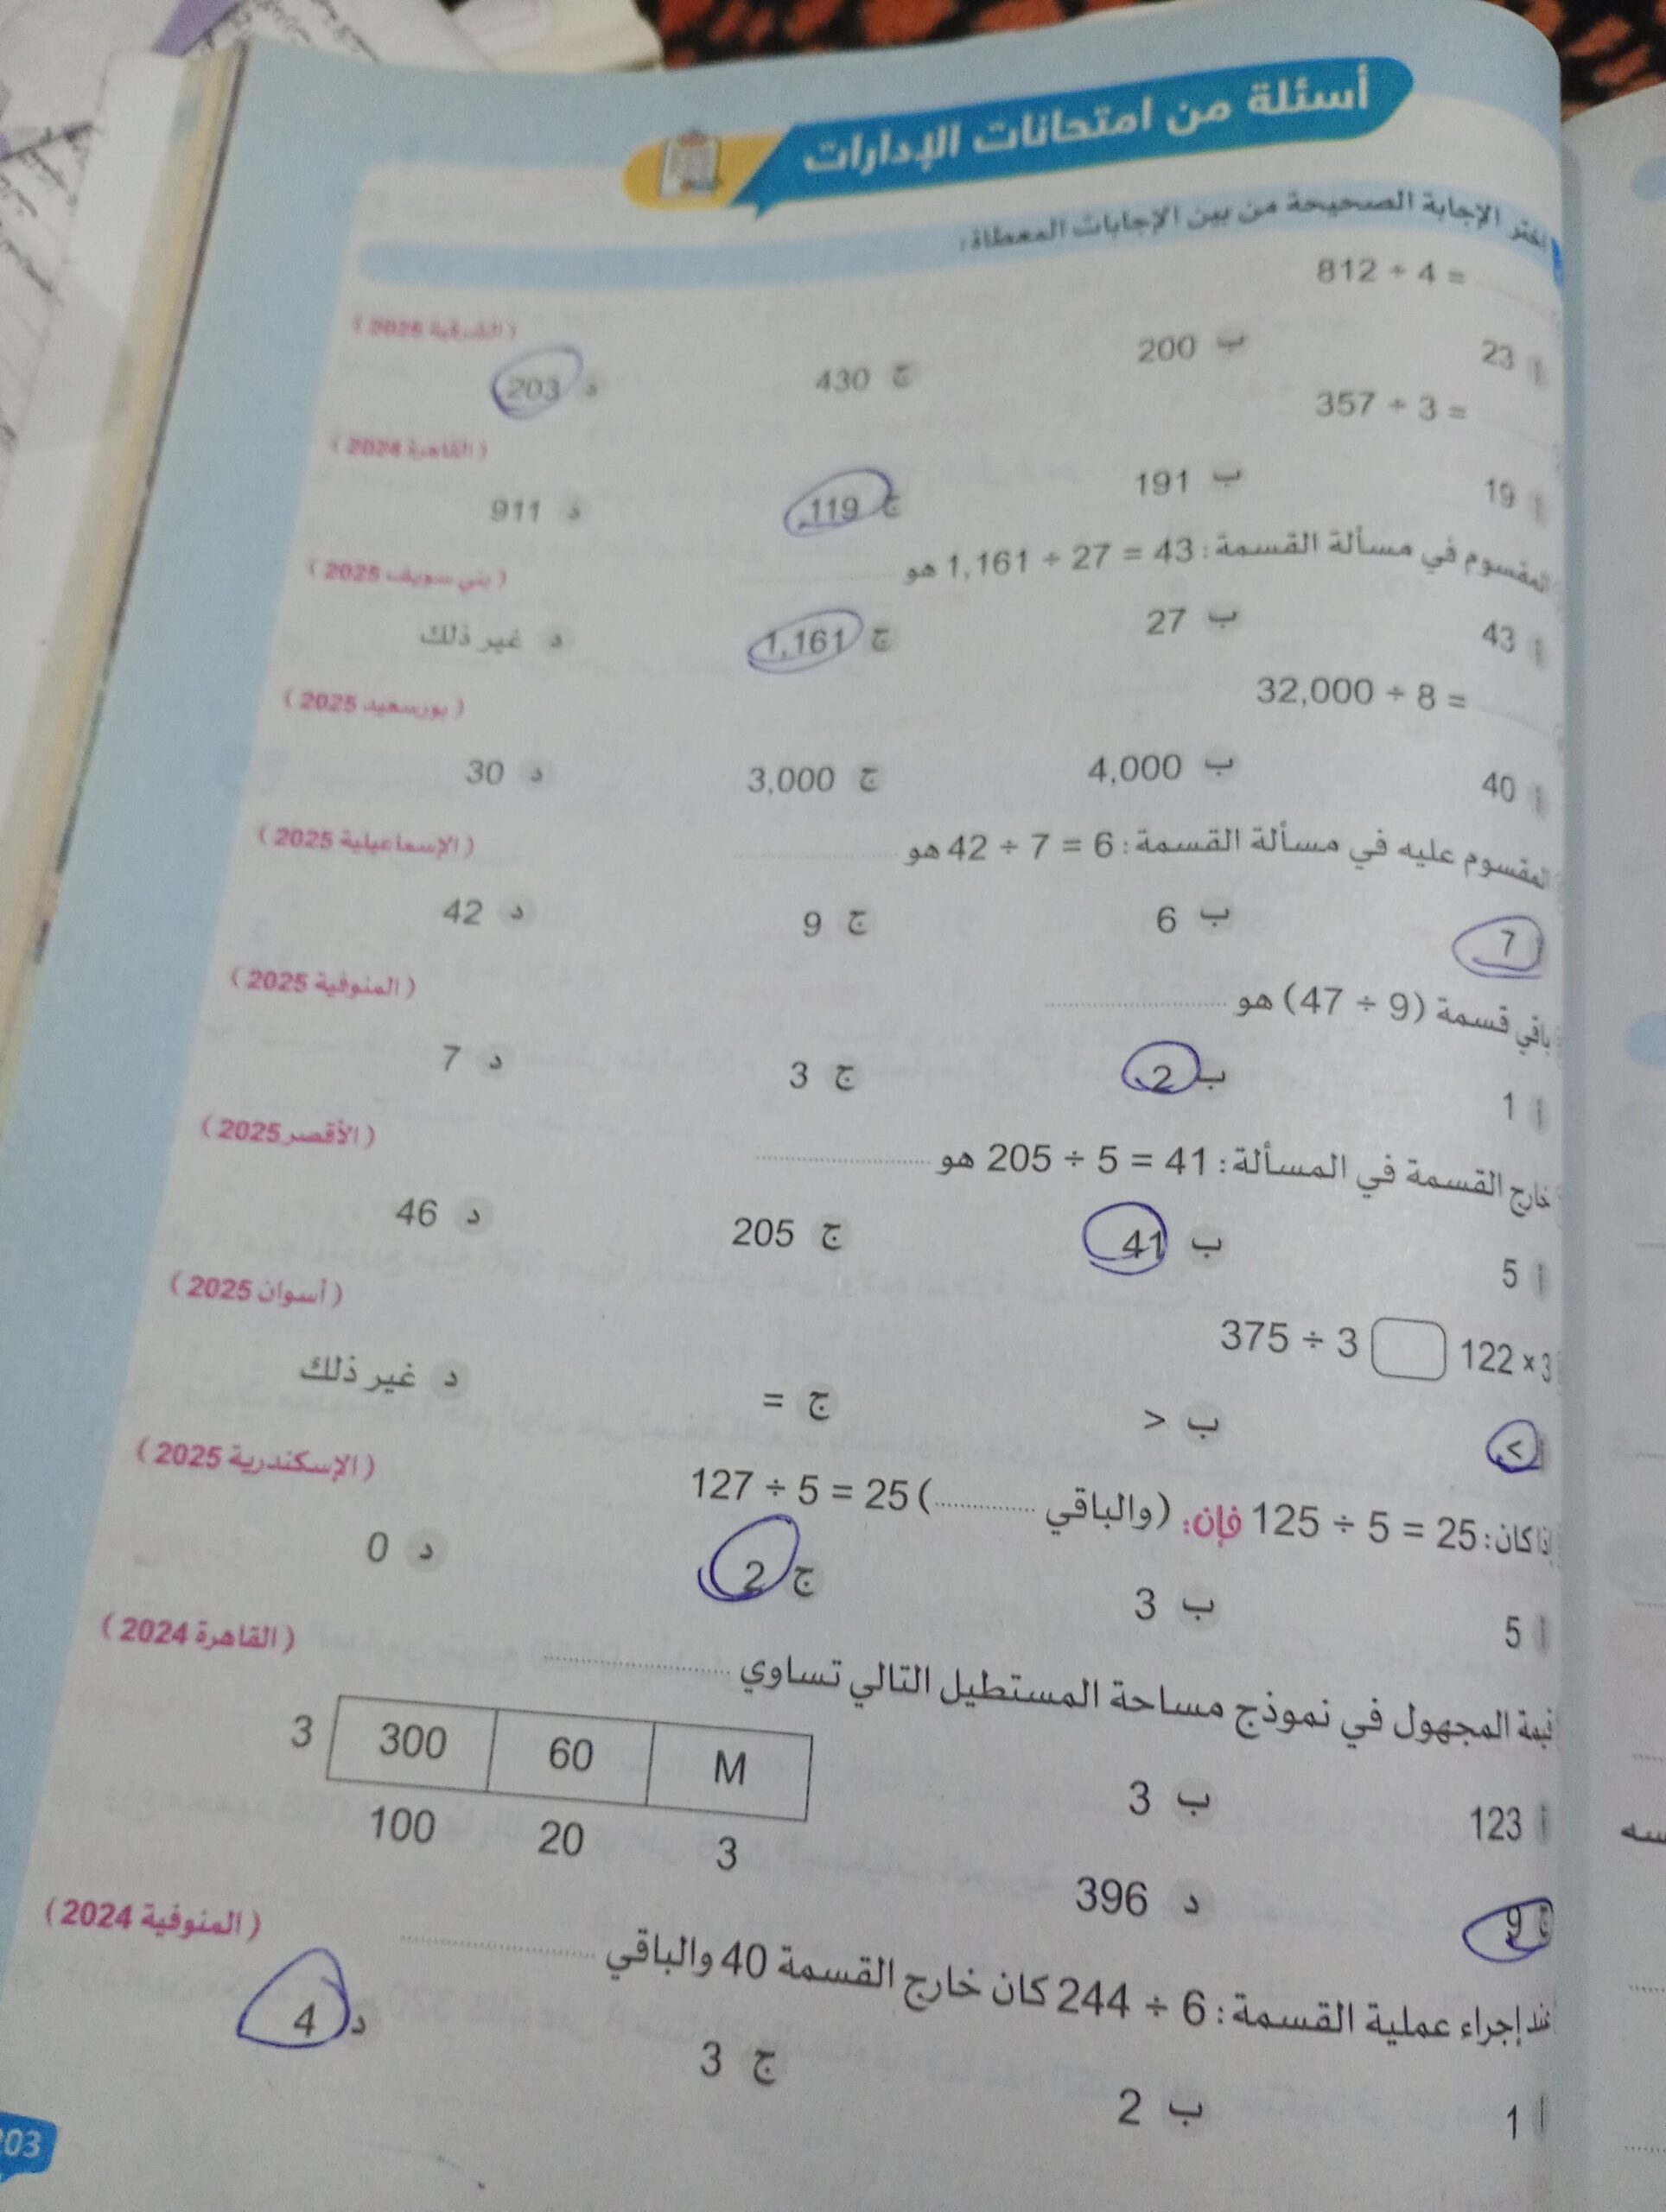 أسئلة من امتحانات الإدارات
اختر الإجابة الصحيحة من بين الإجابات المعطاة:
812 ÷ 4 =
( الشرقية 2025 )
أ 23 ب 200 ج 430 د 203
357 ÷ 3 =
( القاهرة 2024 )
أ 19 ب 191 ج 119 د 911
المقسوم في مسألة القسمة: 43 = 27 ÷ 1,161 هو
( بني سويف 2025 )
أ 43 ب 27 ج 1,161 د غير ذلك
32,000 ÷ 8 =
( بورسعيد 2025 )
أ 40 ب 4,000 ج 3,000 د 30
المقسوم عليه في مسألة القسمة: 6 = 7 ÷ 42 هو
( الإسماعيلية 2025 )
أ 7 ب 6 ج 9 د 42
باقي قسمة (9 ÷ 47) هو
( المنوفية 2025 )
أ 1 ب 2 ج 3 د 7
خارج القسمة في المسألة: 41 = 5 ÷ 205 هو
( الأقصر 2025 )
أ 5 ب 41 ج 205 د 46
375 ÷ 3 122 × 3
( أسوان 2025 )
أ < ب > ج = د غير ذلك
إذا كان: 25 = 5 ÷ 125 فإن: (والباقي ............) 25 = 5 ÷ 127
( الإسكندرية 2025 )
أ 5 ب 3 ج 2 د 0
قيمة المجهول في نموذج مساحة المستطيل التالي تساوي
( القاهرة 2024 )
3 300 60 M
100 20 3
أ 123 ب 3
ج 9 د 396
عند إجراء عملية القسمة: 6 ÷ 244 كان خارج القسمة 40 والباقي
( المنوفية 2024 )
أ 1 ب 2 ج 3 د 4